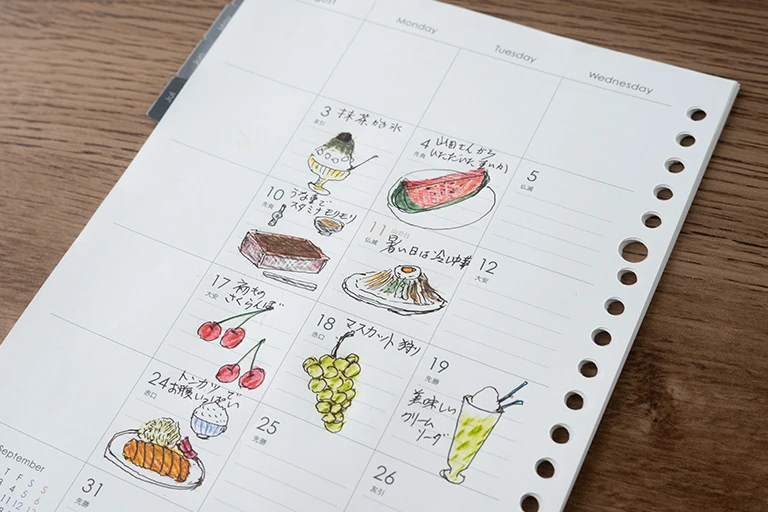 August
Monday
Tuesday
Wednesday
3 抹茶かき氷
友引
4 山田さんから
いただいたすいか
先負
5
仏滅
10 うな重で
スタミナモリモリ
先負
11 山の日
仏滅
暑い日は冷し中華
12
大安
17 初もの
さくらんぼ
大安
18 マスカット狩り
赤口
19
先勝
美味しい
クリーム
ソーダ
24 トンカツで
お腹いっぱい
赤口
25
先勝
26
友引
31
先勝
September
T F S S